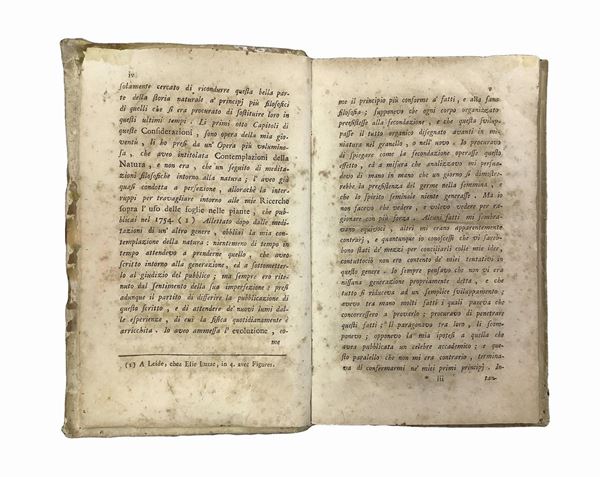 iv
solamente cercato di ricondurre questa bella par-
te della storia naturale a' principj più filosofici
di quelli che si era procurato di sostituire loro in
questi ultimi tempi. Li primi otto Capitoli di
queste Considerazioni, sono opera della mia gio-
ventù, li ho presi da un' Opera più volumino-
sa, che avea intitolata Contemplazioni della
Natura, e non era, che un seguito di medita-
zioni filosofiche intorno alla natura; l'aveo già
quasi condotta a perfezione, allorachè la inter-
ruppi per travagliare intorno alle mie Ricerche
sopra l'uso delle foglie nelle piante, che pub-
blicai nel 1754. (1) Allettato dopo dalle medi-
tazioni di un' altro genere, obbliai la mia con-
templazione della natura: nientemeno di tempo in
tempo attendevo a prenderne quello, che aveo
scritto intorno alla generazione, ed a sottometter-
lo al giudizio del pubblico; ma sempre ero rite-
nuto dal sentimento della sua imperfezione: presi
adunque il partito di differire la pubblicazione di
questo scritto, e di attendere de' nuovi lumi dal-
le esperienze, di cui la fisica quotidianamente è
arricchita. Io aveo ammessa l'evoluzione, co-
me
(1) A Leide, chez Elie Luzac, in 4. avec Figures.
v
me il principio più conforme a' fatti, e alla sana
filosofia; supponevo che ogni corpo organizzato
preesistesse alla fecondazione, e che questa svilup-
passe il tutto organico disegnato avanti in mi-
niatura nel granello, o nell' uovo. Io procuravo
di spiegare come la fecondazione operasse questo
effetto, ed a misura che analizzavo mi persua-
devo di mano in mano che un giorno si dimostre-
rebbe la preesistenza del germe nella femmina, e
che lo spirito seminale niente generasse. Ma io
non facevo che vedere, e volevo vedere per ra-
gionare con più forza. Alcuni fatti mi sembra-
vano equivoci, altri mi erano apparentemente
contrarj, e quantunque io conoscessi che vi sareb-
bono stati de' mezzi per conciliarli colle mie idee,
contuttociò non ero contento de' miei tentativi in
questo genere. Io sempre pensavo che non vi era
nissuna generazione propriamente detta, e che
tutto si riduceva ad un semplice sviluppamento:
aveo tra mano molti fatti i quali pareva che
concorressero a provarlo; procuravo di penetrare
questi fatti; li paragonavo tra loro, li scom-
ponevo; opponevo la mia ipotesi a quella che
avea pubblicata un celebre accademico; e que-
sto paralello che non mi era contrario, termina-
va di confermarmi ne' miei primi principj. In-
iii tan-